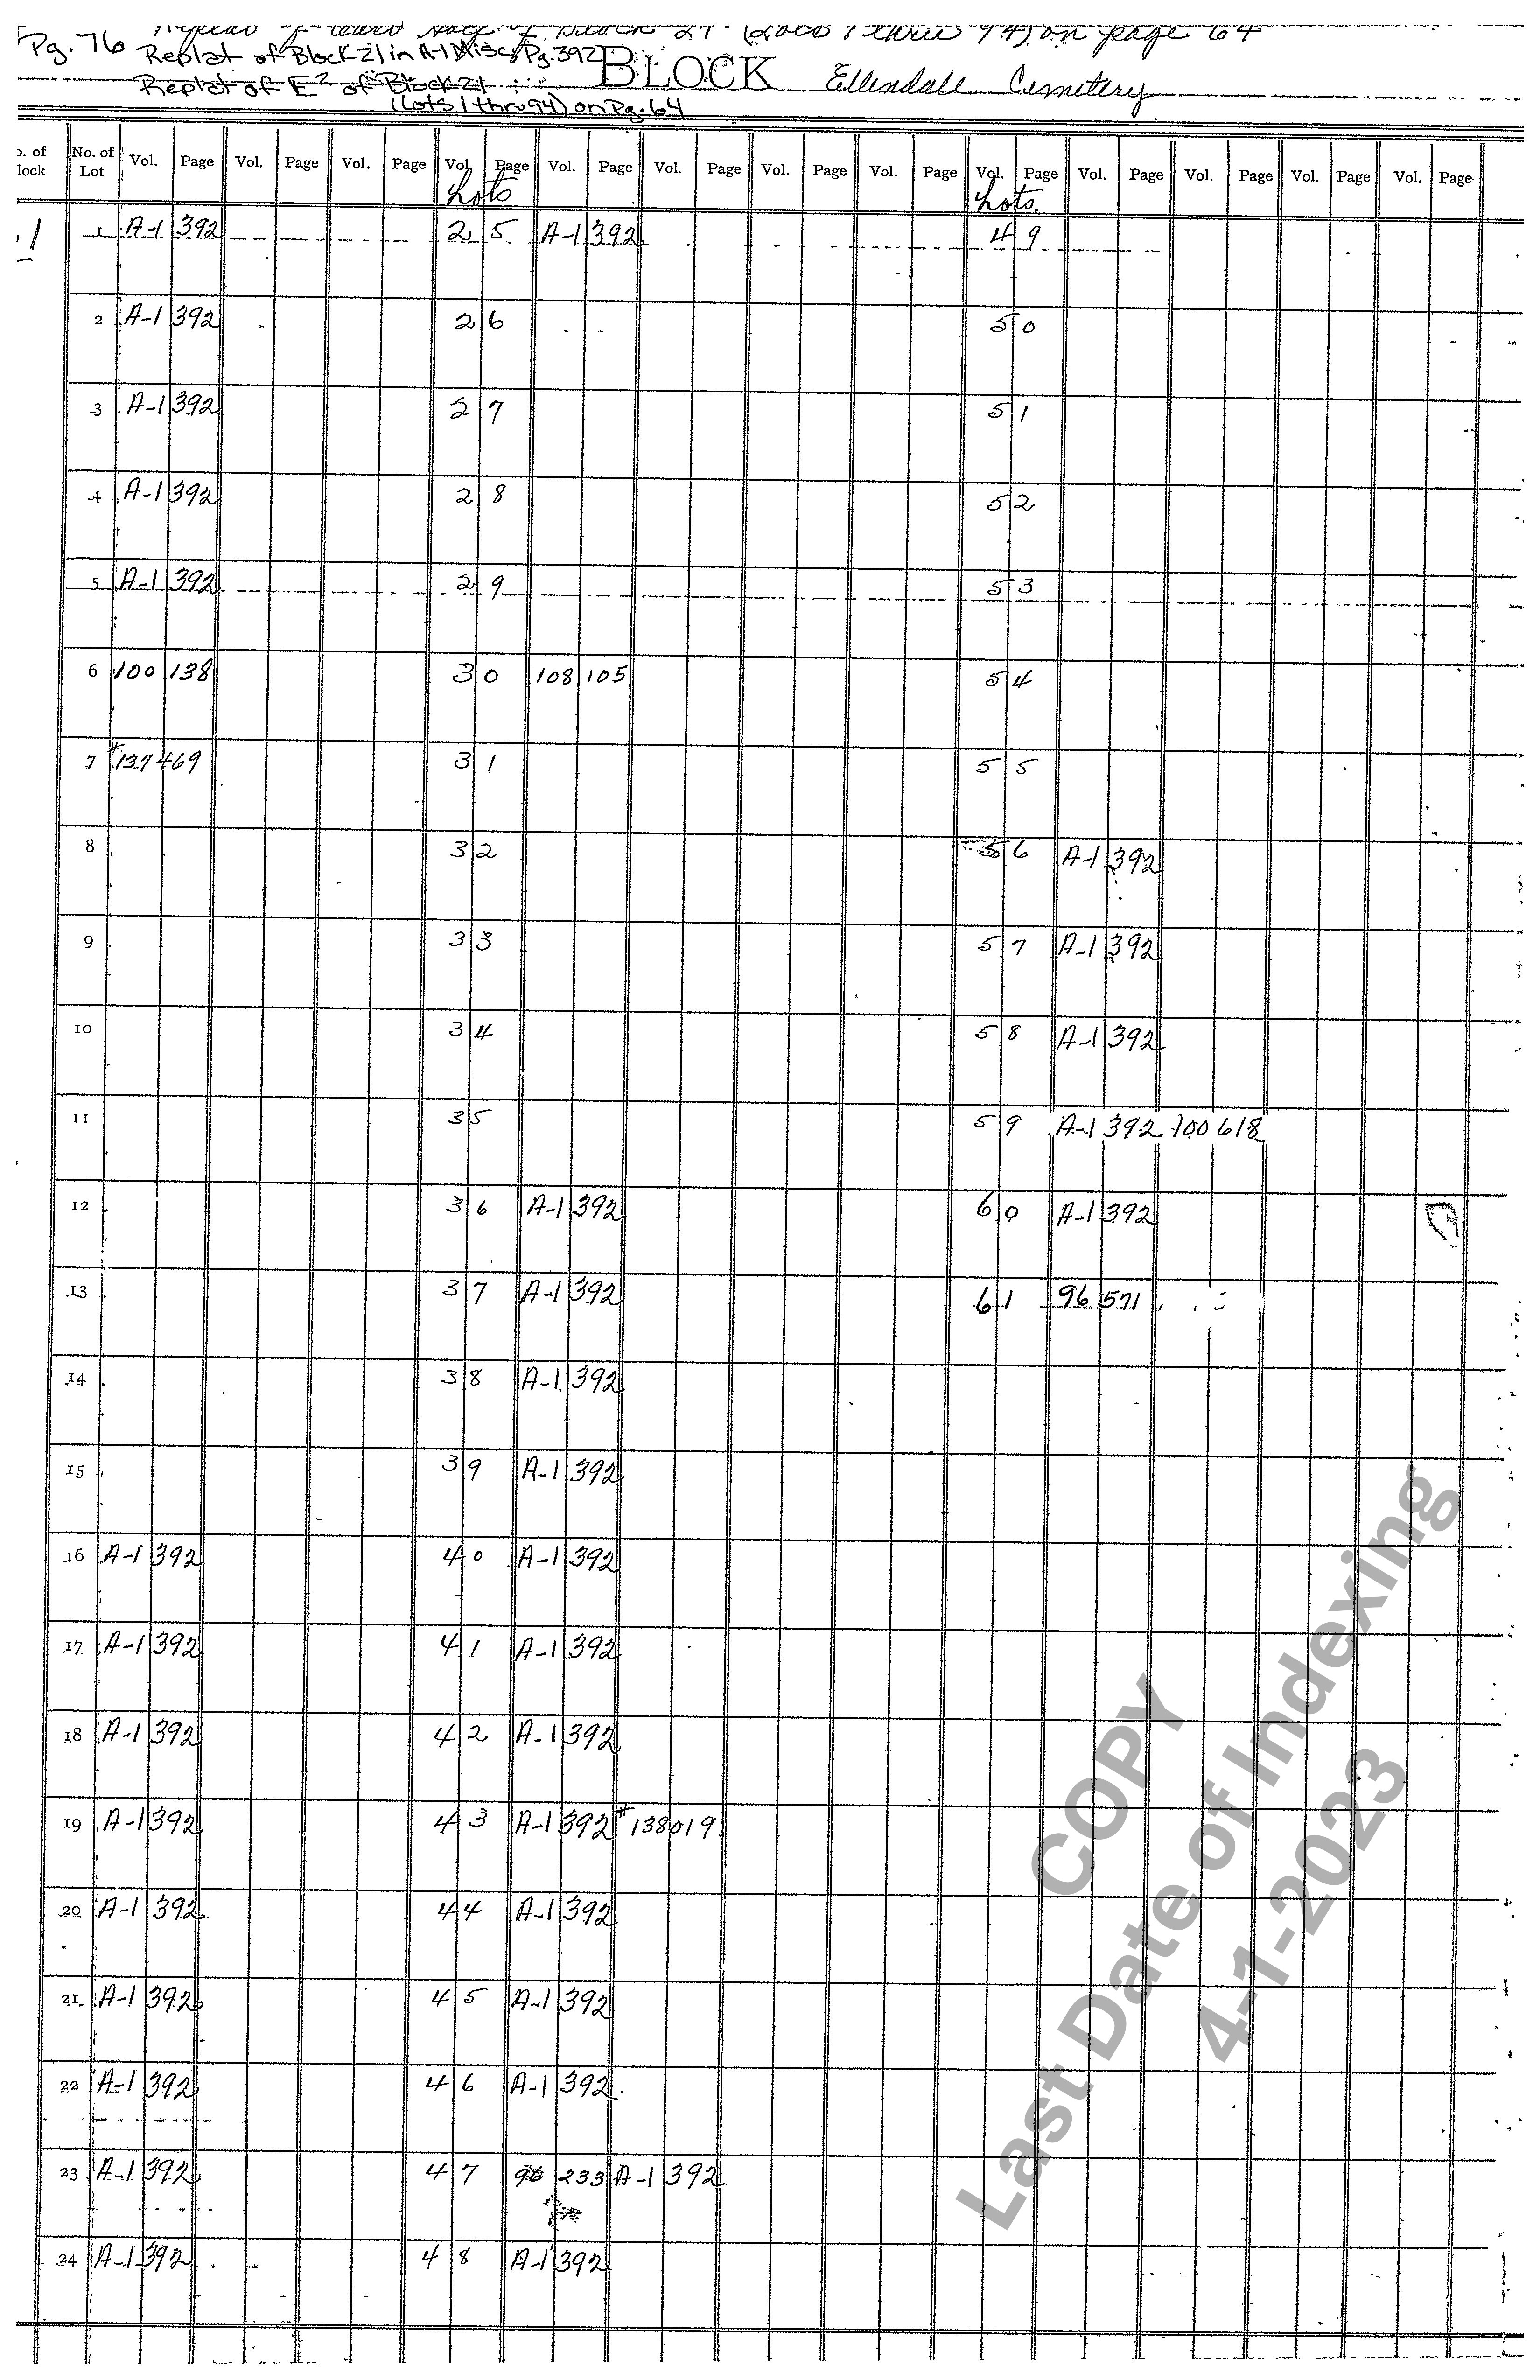 Replat of Block 21 (Lots 1 thru 94) on page 64
Pg. 76 Replat of Block 21 in A-1 Misc, Pg. 392 BLOCK Ellendale Cemetery
Replat of E² of Block 21
(Lots 1 thru 94) on Pg. 64
o. of No. of Vol. Page Vol. Page Vol. Page Vol. Page Vol. Page Vol. Page Vol. Page Vol. Page Vol. Page Vol. Page Vol. Page Vol. Page Vol. Page
lock Lot Lots Lots.
1 1 A-1 392 25 A-1 392 49
2 A-1 392 26 50
3 A-1 392 27 51
4 A-1 392 28 52
5 A-1 392 29 53
6 100 138 30 108 105 54
7 #137469 31 55
8 32 56 A-1 392
9 33 57 A-1 392
10 34 58 A-1 392
11 35 59 A-1 392 100 618
12 36 A-1 392 60 A-1 392
13 37 A-1 392 61 96 571
14 38 A-1 392
15 39 A-1 392
16 A-1 392 40 A-1 392
17 A-1 392 41 A-1 392
18 A-1 392 42 A-1 392
19 A-1 392 43 A-1 392 #138019
20 A-1 392 44 A-1 392
21 A-1 392 45 A-1 392
22 A-1 392 46 A-1 392
23 A-1 392 47 96 233 A-1 392
24 A-1 392 48 A-1 392
COPY
Last Date of Indexing
4-1-2023